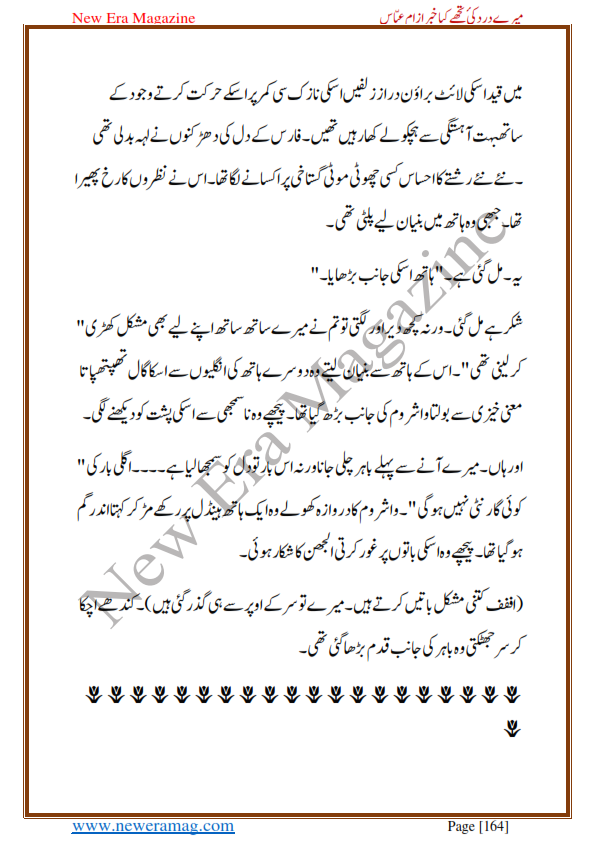 New Era Magazine میرے درد کی تجھے کیا خبر از ام عبّاس
میں قید اسکی لائٹ براؤن دراز زلفیں اسکی نازک سی کمر پر اسکے حرکت کرتے وجود کے
ساتھبہت آہستگی سے ہچکولے کھار ہیں تھیں۔ فارس کے دل کی دھڑکنوں نے لہہ بدلی تھی
۔ نئے نئے رشتے کا احساس کسی چھوٹی موٹی گستاخی پر اکسانے لگا تھا۔ اس نے نظروں کا رخ پھیرا
تھا۔ جبھی وہ ہاتھ میں بنیان لیے پلٹی تھی۔
یہ۔ مل گئی ہے۔" ہاتھ اسکی جانب بڑھایا۔"
شکر ہے مل گئی۔ ورنہ کچھ دیر اور لگتی تو تم نے میرے ساتھ ساتھ اپنے لیے بھی مشکل کھڑی"
کر لینی تھی"۔ اس کے ہاتھ سے بنیان لیتے وہ دوسرے ہاتھ کی انگلیوں سے اسکا گال تھپتھپاتا
معنی خیزی سے بولتا واشروم کی جانب بڑھ گیا تھا۔ پیچھے وہ نا سمجھی سے اسکی پشت کو دیکھنے لگی۔
اور ہاں۔ میرے آنے سے پہلے باہر چلی جانا ورنہ اس بار تو دل کو سمجھا لیا ہے۔۔۔۔ اگلی بار کی"
کوئی گارنٹی نہیں ہوگی"۔ واشروم کا دروازہ کھولے وہ ایک ہاتھ ہینڈل پر رکھے مڑ کر کہتا اندر گم
ہو گیا تھا۔ پیچھے وہ اسکی باتوں پر غور کرتی الجھن کا شکار ہوئی۔
(اففف کتنی مشکل باتیں کرتے ہیں۔ میرے تو سر کے اوپر سے ہی گذر گئی ہیں)۔ کندھے اچکا
کر سر جھٹکتی وہ باہر کی جانب قدم بڑھا گئی تھی۔
New Era Magazine
www.neweramag.com Page [164]